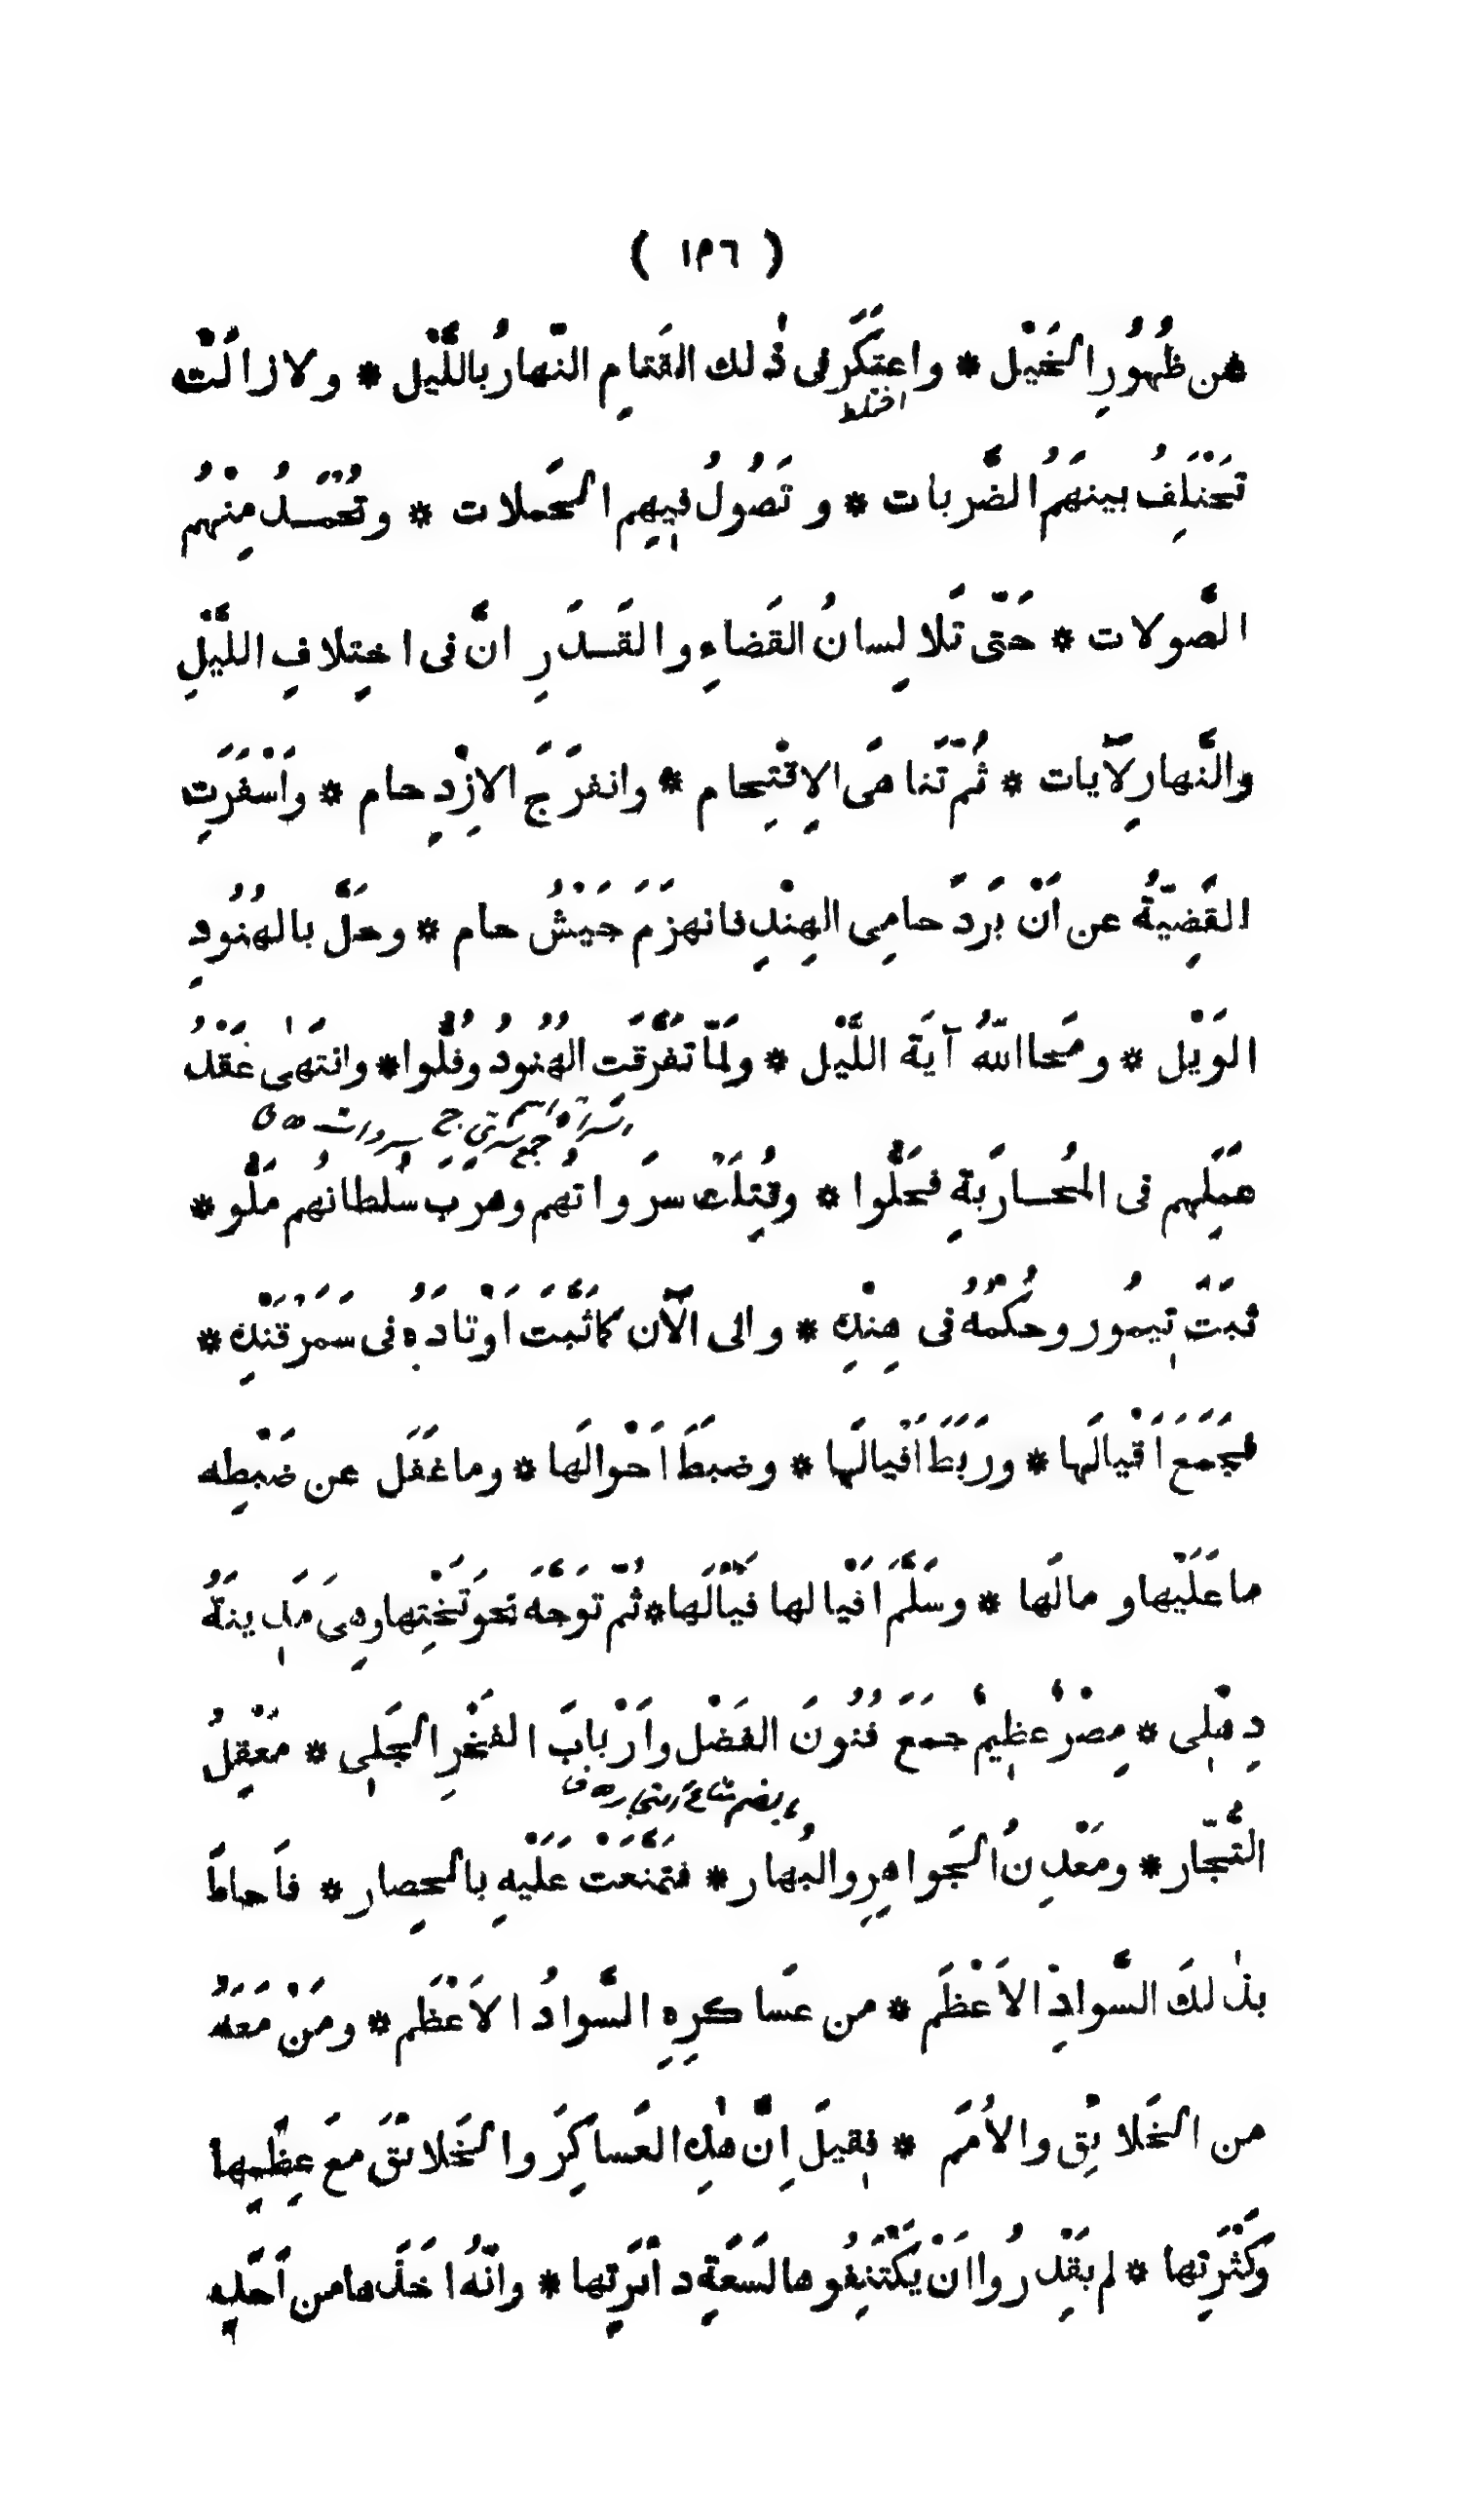 ( ١٣٦ )
من ظُهُورِ الخَيْل * واعتَكَر فى ذٰلك القَتامِ النّهارُ باللَّيْل * ولا زالَتْ
اختلط
تَخْتَلِفُ بينَهمُ الضَّربات * و تَصُولُ فيهِم الحَملات * وتُحْمَدُ مِنْهُم
الصَّولات * حَتّى تَلا لِسانُ القَضاءِ والقَدَرِ انَّ فى اختِلافِ اللَّيْلِ
والنَّهارِ لآيات * ثُمّ تَناهَى الِاقْتِحام * وانفرَجَ الازْدِحام * واَسْفَرَت
القَضِيّةُ عن اَنْ بَرَدَ حامِى الهِنْدِ فانهزَمَ جَيْشُ حام * وحَلَّ بالهُنُودِ
الوَيْل * ومَحا اللّهُ آيَة اللَّيْل * ولَمّا تفَرَّقَت الهُنُودُ وفُلُّوا * وانتَهٰى عَقْدُ
عَمَلِهم فى المُحارَبَةِ فحَلُّوا * وقُتِلَتْ سرَواتُهُم وهرَب سُلطانُهُم مَلُّو *
ثَبَتَ تيمُور وحُكْمُهُ فى هِنْدِ * والى الآن كما ثَبَّتَ اَوْتادَهُ فى سَمَرْقَنْدِ *
فجَمَعَ اَقْيالَها * ورَبَطَ اَفْيالَها * وضبَطَ اَحْوالَها * وما غَفَل عن ضَبْطِه
ما عَلَيْها و مالَها * وسَلَّمَ اَفْيالها فَيّالَها * ثُمّ توَجَّهَ نحوَ تَخْتِها وهِىَ مَدينَةُ
دِهْلى * مِصْرٌ عظيمٌ جمَعَ فُنُونَ الفَضْل واَرْبابَ الفَخْرِ الجَلى * مَعْقِلُ
التُّجّار * ومَعْدِنُ الجَواهِرِ والبُهار * فتَمَنَّعَتْ عَلَيْهِ بالحِصار * فاَحاطَ
بذٰلكَ السَّوادِ الاَعْظَم * من عَساكرِهِ السَّوادُ الاَعْظَم * ومَنْ مَعَهُ
من الخَلائِق والاُمَم * فقيلَ اِنَّ هٰذِه العَساكِرَ والخَلائقَ معَ عِظَمِها
وكَثْرَتِها * لم يَقْدِرُوا اَنْ يَكْتَنِفُوها لسَعَةِ دائرَتِها * وانّهُ اخَذَها من اَحَدِ